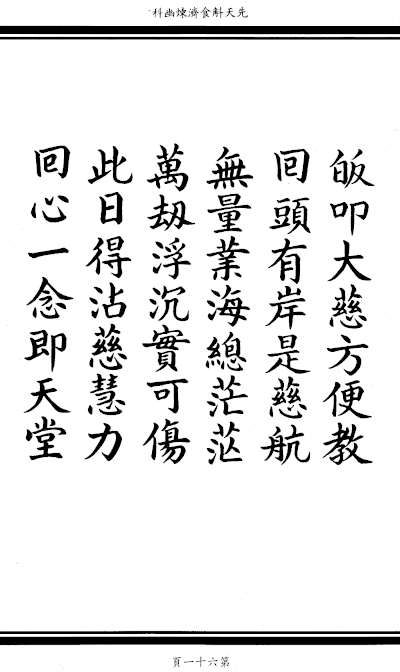 先天斛食濟煉幽科
皈叩大慈方便教
回頭有岸是慈航
無量業海總茫茫
萬刼浮沉實可傷
此日得沾慈慧力
回心一念即天堂
第六十一頁